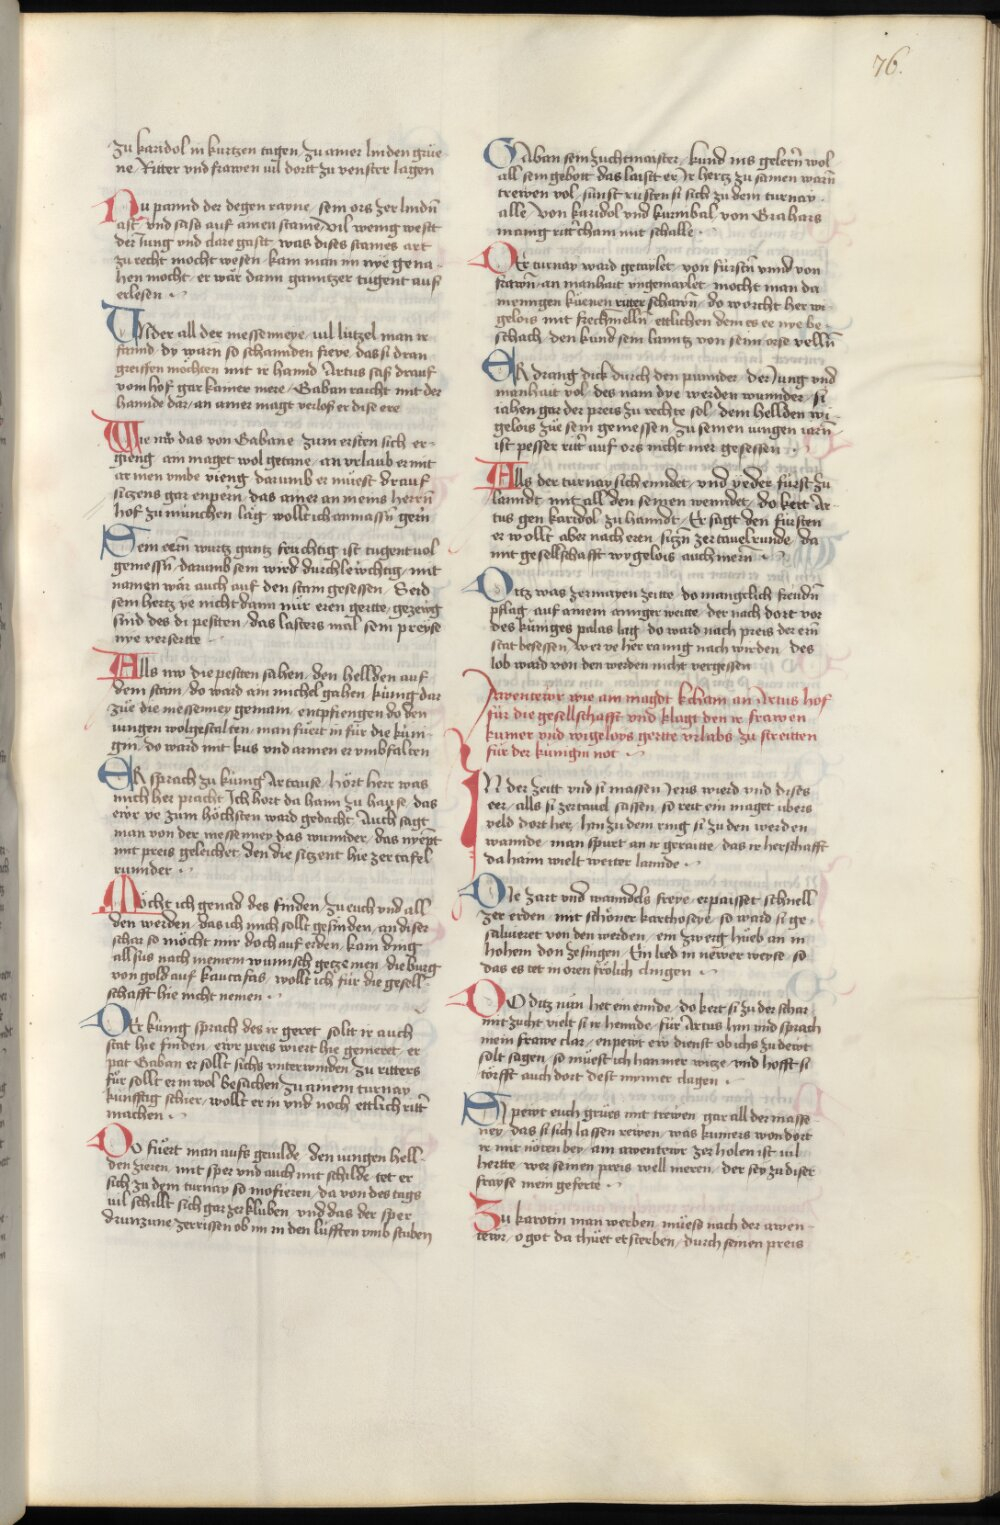 76.
zu karidol in kurtzen tagen / zu ainer linden grüe-
ne / Ritter vnd frawen vil dortt zu venstre lagen
Nu pannd der degen rayne / sein ors zer lindn̄
ast / vnd sass auf ainen stainē / vil wenig wesst
der Jung vnd clare gasst / was dises staines art
zu recht mocht wesen / kain man im nye gena-
hen mocht / er wär dann ganntzer tugent auss
erlesen
Vnder all der messeneye / vil lützel man ir
fannd / dy warn so schannden freye / das si dran
greiffen möchten mit ir hannd Artus sass drauf
vom hof gar kainer mere / Gaban raicht mit der
hannde dar / an ainer magt verloss er dise ere
Wie nw das von Gabane zum ersten sich er-
gieng ain maget wol getane / an vrlaub er mit
armen vmbe vieng darumb er müest drauf
sitzens gar enpern / das ainer an meins herrn̄
hof zu münchen läg wollt ich anmassn̄ gern̄
Dem eern̄ wurtz gantz feuchtig ist tugent vol
gemessn̄ / darumb sein wird durchlewchtig / mit
namen wär auch auf den stain gesessen / Seid
sein hertz ye nicht dann nür eren gertte / gezewg
sind des di pessten / das lasters mal sein preyse
nye versertte
Alls nw die pessten sahen / den hellden auf
dem stain / do ward ain michel gahen / künig dar
züe die messenney gemain / entpfiengen do den
iungen wolgestalten / man füert in für die küni-
gin / do ward mit kus vnd armen er vmbfalten
ER sprach zu künig Artause / hört herr was
mich her pracht Ich hort da haim zu hause / das
ewr ye zum höchsten ward gedacht / Auch sagt
man von der messenney das wunnder / das nyem̄t
mit preis geleichet / den die sitzent hie zer tafel
runnder
Möcht ich genad des finden / zu euch vnd all
den werden / das ich mich sollt gesinden / an diser
schar so möcht mir doch auf erden / kain ding
all sus nach meinem wunnsch getzemen / die burg
von gold auf kaucasas / wollt ich für die gesell-
schafft hie nicht nemen
DEr künig sprach des ir geret / sollt ir auch
stat hie finden / ewr preis wiert hie gemeret / er
pat Gaban er sollt sichs vnterwinden / zu ritters
für sollt er in wol besachen / zu ainem turnay
künfftig schier / wollt er in vnd noch ettlich rittr̄
machen
Do füert man aufs geuilde / den iungen hell-
den zieren / mit sper vnd auch mit schilde / tet er
sich zu dem turnay so mosieren / da von des tags
vil schillt sich gar zerkluben / vnd das der sper
drunzune zerrissen ob im in den lüfften vmb stuben
GAban sein zuchtmaister / kund ins gelern̄ wol
all sein gebott das laisst er Ir hertz zu samen warn̄
trewen vol / sünst rüsten si sich zu dem turnay
alle / von karidol vnd kurnibal / von Grahars
manig rittr̄ cham mit schalle
DEr turnay ward getaylet / von fürstn̄ vnnd von
frawn̄ / an manhait vngemaylet / mocht man da
menigen küenen ritter schawn̄ / do worcht her wi-
gelois mit frechmelln̄ / ettlichen dem es ee nye be-
schach / den kund sein lannntz von sein orse velln̄
ER drang dick durch den punnder / der Jung vnd
manhait vol / des nam dye werden wunnder / si
iahen gar der preis zu rechte sol / dem hellden wi-
gelois züe sein gemessen / zu seinen iungen iarn̄
ist pesser rittr̄ auf ors nicht mer gesessen
Alls der turnay sich enndet / vnd yeder fürst zu
lanndt / mit all den seinen wenndet / do kert Ar-
tus gen karidol zu hanndt / Er sagt den fürsten
er wollt aber nach eren / sitzn̄ zer tauelrunde / da
mit gesellschafft wygelois auch mern̄
Ditz was zer mayen zeitte / do mangelich freudn̄
pflag / auf ainem annger weitte / der nach dort vor
des küniges palas lag / do ward nach preis der ern̄
stat besessen / wer ye her rannig nach wirden / des
lob ward von den werden nicht vergessen
Awentewr wie ain magdt kcham an Artus hof
für die gesellschafft vnd klagt den ir frawen
kumer vnd wigeloys gertte vrlabs zu streitten
für der künigin not
IN der zeitt vnd si massen / Jens wierd vnd dises
eer / alls si zertauel sassen / so reit ein maget vbers
veld dort her / hin zu dem ring si zu den werden
wannde / man spürt an ir geraitte / das ir herschafft
da haim wielt weiter lannde
Die zart vnd wanndels freye / erpaisset schnell
zer erden / mit schöner karthoseye / so ward si ge-
saluieret von den werden / ein zwerg hüeb an in
hohem don zesingen / Ein lied in newer weyse / so
das es tet in oren frölich clingen
DO ditz nun het ein ennde / do kert si zu der schar
mit zucht vielt si ir hennde / für Artus hin vnd sprach
mein frawe clar / enpewt ew dienst ob ichs zu dewt
solt sagen / so müest ich han mer witze / vnd hofft si
törfft auch dort dest mynner clagen
Si pewt euch grües mit trewen / gar all der masse-
ney / das si sich lassen rewen / was kumers won dort
ir mit nöten bey / ain awentewr zer holen ist vil
hertte / wer seinen preis well meren / der sey zu diser
frayse mein geferte
Zu karotin man werben / müess nach der awen-
tewr / o got da thüet et sterben / durch seinen preis